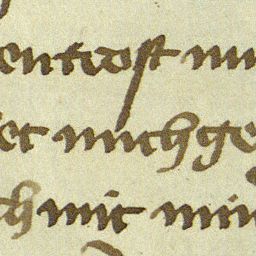 entrost mi
et mich ge
ch mit min